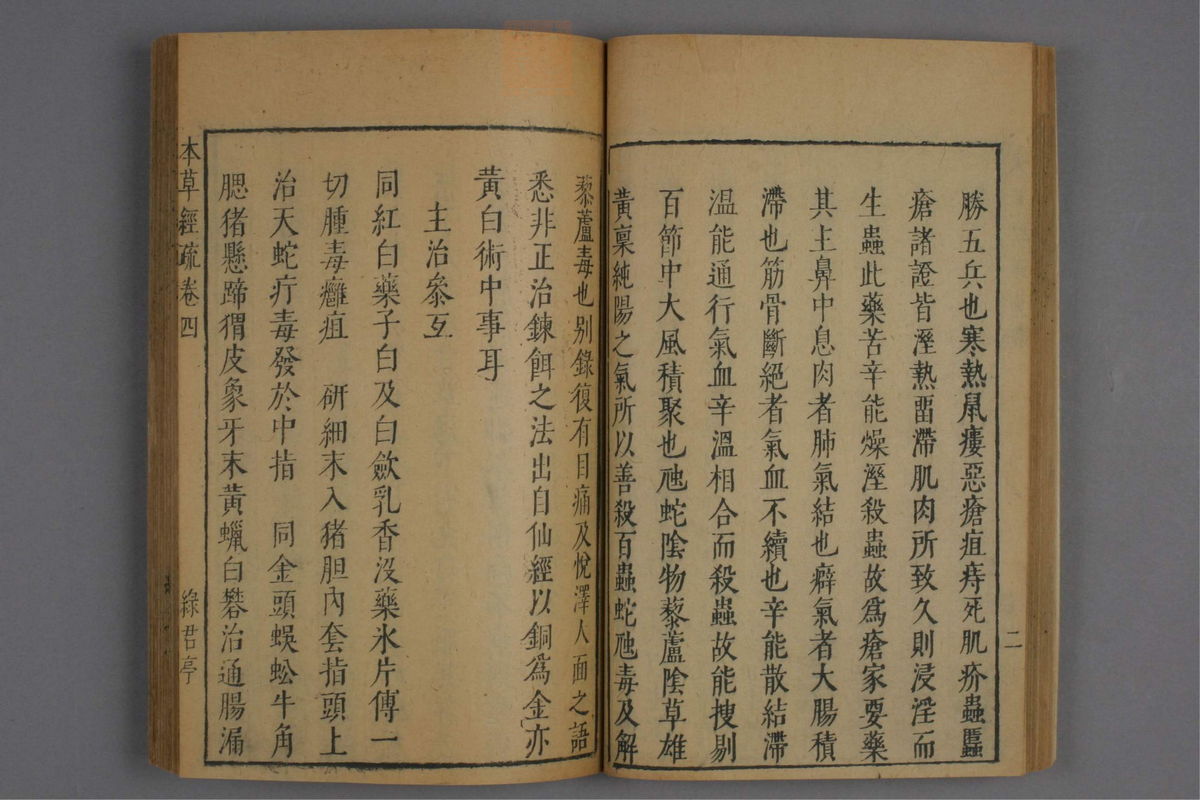 勝五兵也寒熱鼠瘻惡瘡疽痔死肌疥蟲䘌
瘡諸證皆溼熱畱滯肌肉所致久則浸淫而
生蟲此藥苦辛能燥溼殺蟲故爲瘡家要藥
其主鼻中息肉者肺氣結也癖氣者大腸積
滯也筋骨斷絕者氣血不續也辛能散結滯
溫能通行氣血辛溫相合而殺蟲故能搜剔
百節中大風積聚也虺蛇陰物藜蘆陰草雄
黃稟純陽之氣所以善殺百蟲蛇虺毒及解
二
藜蘆毒也别錄復有目痛及悅澤人面之語
悉非正治鍊餌之法出自仙經以銅爲金亦
黃白術中事耳
主治參互
同紅白藥子白及白歛乳香沒藥氷片傅一
切腫毒癰疽　研細末入猪胆內套指頭上
治天蛇疔毒發於中指　同金頭蜈蚣牛角
腮猪懸蹄猬皮象牙末黃蠟白礬治通腸漏
本草經疏卷四
綠君亭